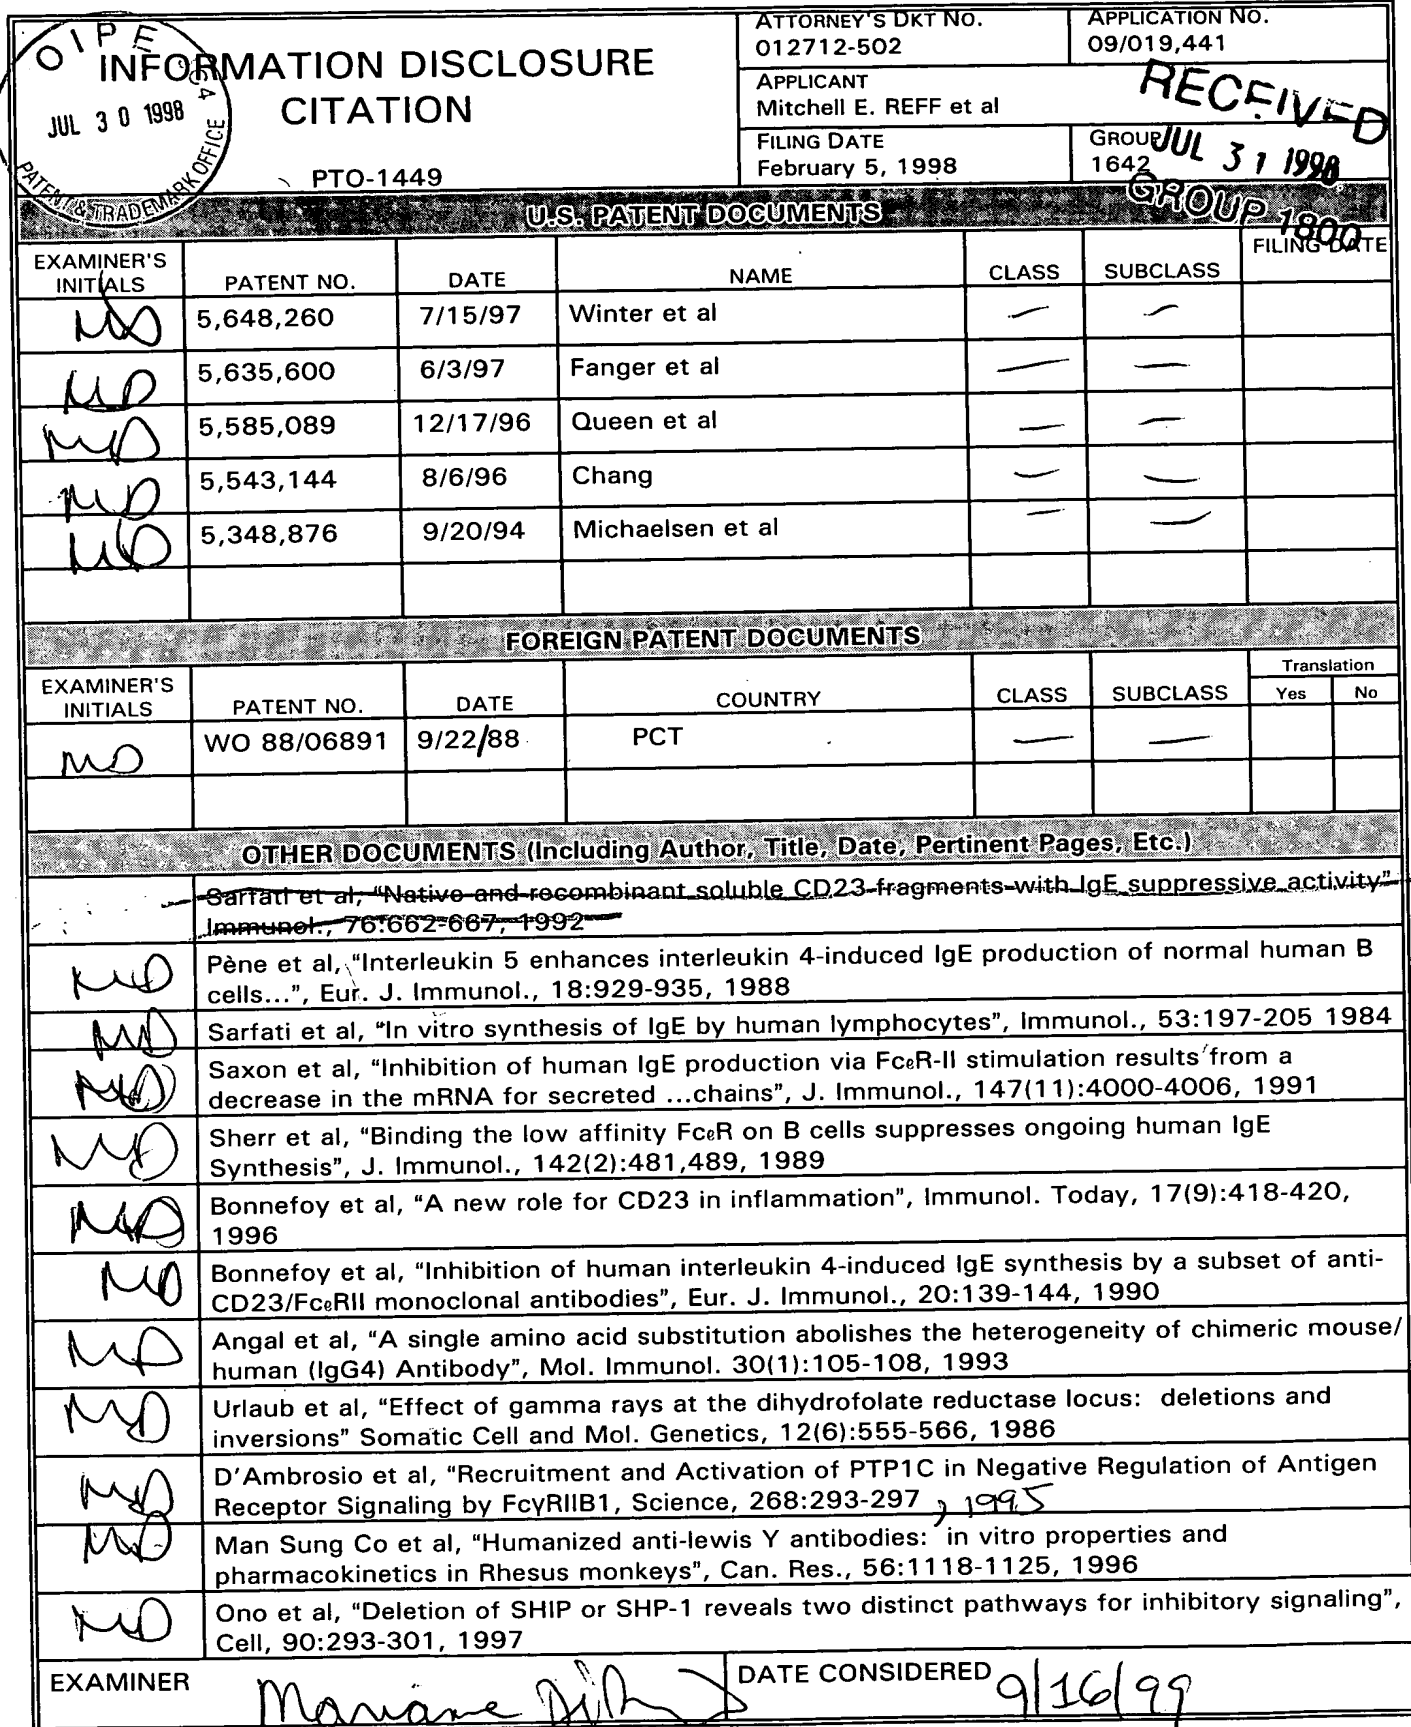 OIPE
JUL 30 1998
PATENT & TRADEMARK OFFICE
INFORMATION DISCLOSURE
CITATION
PTO-1449
ATTORNEY'S DKT NO.
012712-502
APPLICATION NO.
09/019,441
APPLICANT
Mitchell E. REFF et al
FILING DATE
February 5, 1998
GROUP
1642
RECEIVED
JUL 31 1998
GROUP 1800
U.S. PATENT DOCUMENTS
EXAMINER'S INITIALS PATENT NO. DATE NAME CLASS SUBCLASS FILING DATE
MD 5,648,260 7/15/97 Winter et al — —
MD 5,635,600 6/3/97 Fanger et al — —
MD 5,585,089 12/17/96 Queen et al — —
MD 5,543,144 8/6/96 Chang — —
MD 5,348,876 9/20/94 Michaelsen et al — —
FOREIGN PATENT DOCUMENTS
EXAMINER'S INITIALS PATENT NO. DATE COUNTRY CLASS SUBCLASS Translation Yes No
MD WO 88/06891 9/22/88 PCT — —
OTHER DOCUMENTS (Including Author, Title, Date, Pertinent Pages, Etc.)
Sarfati et al, "Native and recombinant soluble CD23 fragments with IgE suppressive activity"
Immunol., 76:662-667, 1992
MD Pène et al, "Interleukin 5 enhances interleukin 4-induced IgE production of normal human B
cells...", Eur. J. Immunol., 18:929-935, 1988
MD Sarfati et al, "In vitro synthesis of IgE by human lymphocytes", Immunol., 53:197-205 1984
MD Saxon et al, "Inhibition of human IgE production via FcεR-II stimulation results from a
decrease in the mRNA for secreted ...chains", J. Immunol., 147(11):4000-4006, 1991
MD Sherr et al, "Binding the low affinity FcεR on B cells suppresses ongoing human IgE
Synthesis", J. Immunol., 142(2):481,489, 1989
MD Bonnefoy et al, "A new role for CD23 in inflammation", Immunol. Today, 17(9):418-420,
1996
MD Bonnefoy et al, "Inhibition of human interleukin 4-induced IgE synthesis by a subset of anti-
CD23/FcεRII monoclonal antibodies", Eur. J. Immunol., 20:139-144, 1990
MD Angal et al, "A single amino acid substitution abolishes the heterogeneity of chimeric mouse/
human (IgG4) Antibody", Mol. Immunol. 30(1):105-108, 1993
MD Urlaub et al, "Effect of gamma rays at the dihydrofolate reductase locus: deletions and
inversions" Somatic Cell and Mol. Genetics, 12(6):555-566, 1986
MD D'Ambrosio et al, "Recruitment and Activation of PTP1C in Negative Regulation of Antigen
Receptor Signaling by FcγRIIB1, Science, 268:293-297 , 1995
MD Man Sung Co et al, "Humanized anti-lewis Y antibodies: in vitro properties and
pharmacokinetics in Rhesus monkeys", Can. Res., 56:1118-1125, 1996
MD Ono et al, "Deletion of SHIP or SHP-1 reveals two distinct pathways for inhibitory signaling",
Cell, 90:293-301, 1997
EXAMINER
DATE CONSIDERED 9/16/99